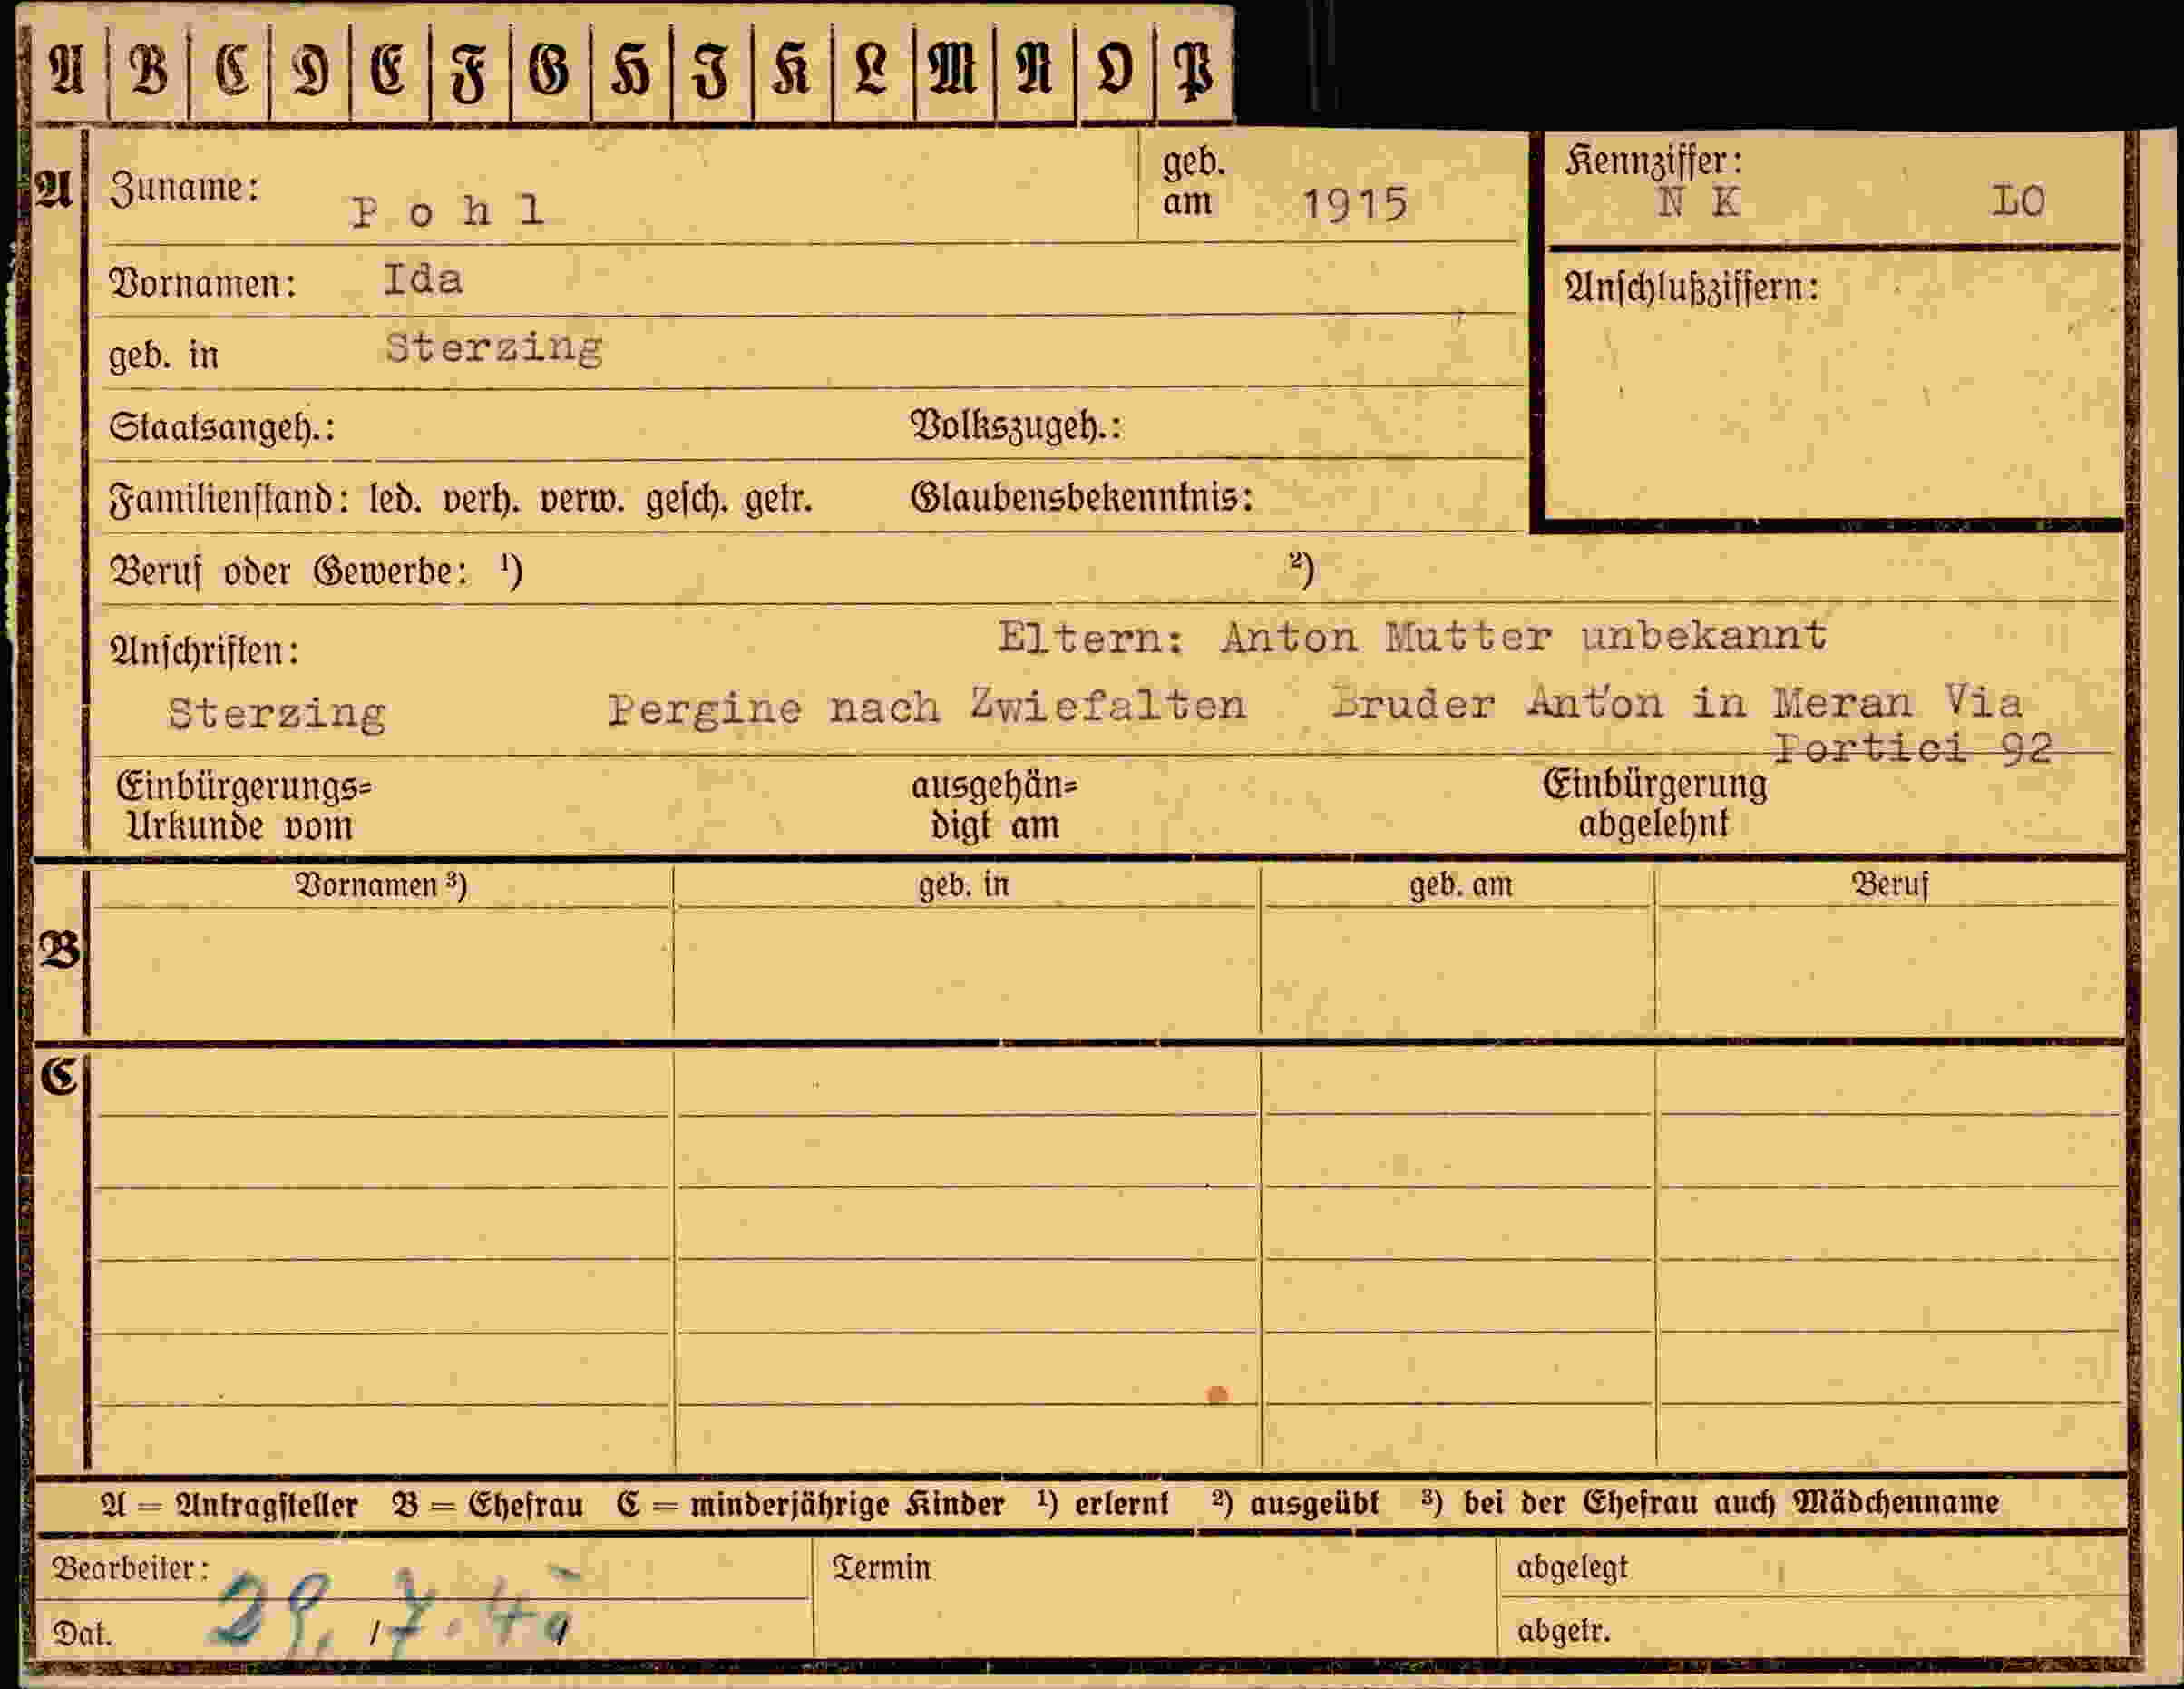 A B C D E F G H I K L M N O P
A Zuname: Pohl geb. am 1915 Kennziffer: N K LO
Vornamen: Ida Anschlußziffern:
geb. in Sterzing
Staatsangeh.: Volkszugeh.:
Familienstand: led. verh. verw. gesch. getr. Glaubensbekenntnis:
Beruf oder Gewerbe: ¹) ²)
Anschriften: Eltern: Anton Mutter unbekannt
Sterzing Pergine nach Zwiefalten Bruder Anton in Meran Via
Portici 92
Einbürgerungs= ausgehän= Einbürgerung
Urkunde vom digt am abgelehnt
Vornamen ³) geb. in geb. am Beruf
B
C
A = Antragsteller B = Ehefrau C = minderjährige Kinder ¹) erlernt ²) ausgeübt ³) bei der Ehefrau auch Mädchenname
Bearbeiter: Termin abgelegt
Dat. 29. 7. abgetr.